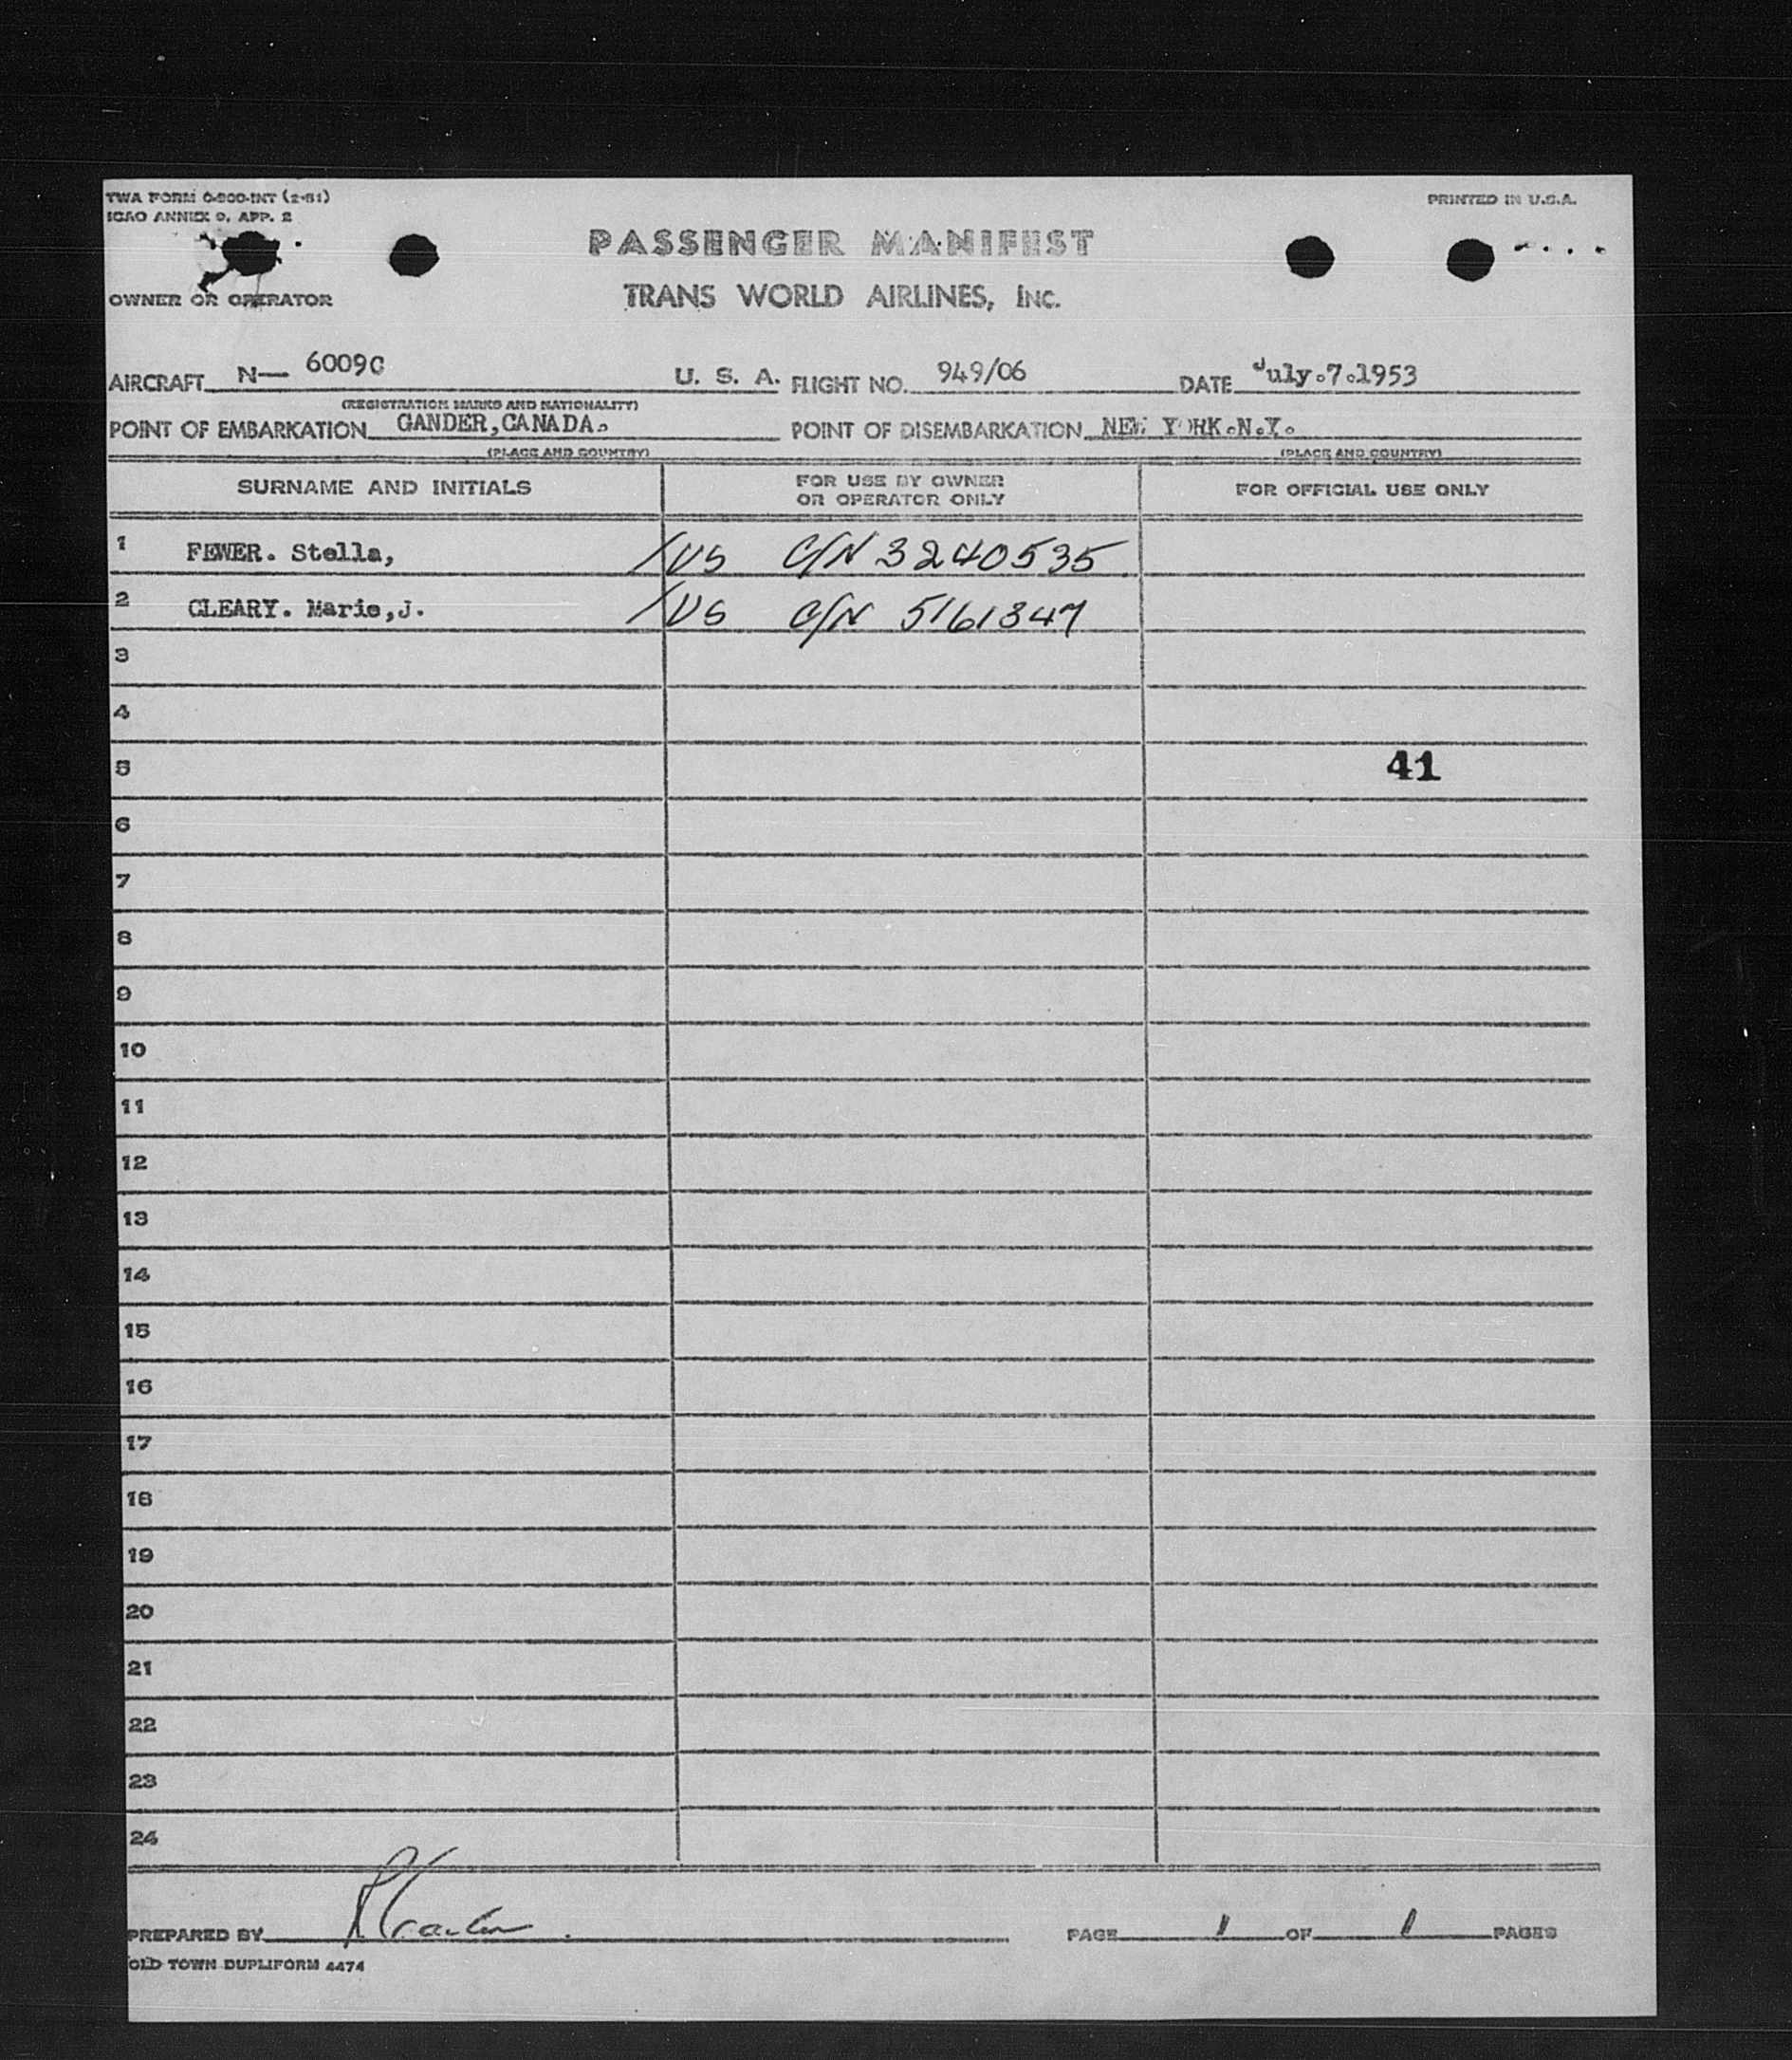 TWA FORM O-800-INT (2-51)
PRINTED IN U.S.A.
ICAO ANNEX 9, APP. 2
PASSENGER MANIFEST
OWNER OR OPERATOR
TRANS WORLD AIRLINES, INC.
AIRCRAFT N— 6009C U. S. A. FLIGHT NO. 949/06 DATE July.7.1953
(REGISTRATION MARKS AND NATIONALITY)
POINT OF EMBARKATION GANDER,CANADA. POINT OF DISEMBARKATION NEW YORK.N.Y.
(PLACE AND COUNTRY) (PLACE AND COUNTRY)
SURNAME AND INITIALS FOR USE BY OWNER OR OPERATOR ONLY FOR OFFICIAL USE ONLY
1 FEWER. Stella, /US C/N 3240535
2 CLEARY. Marie,J. /US C/N 5161347
3
4
5 41
6
7
8
9
10
11
12
13
14
15
16
17
18
19
20
21
22
23
24
PREPARED BY PAGE 1 OF 1 PAGES
OLD TOWN DUPLIFORM 4474